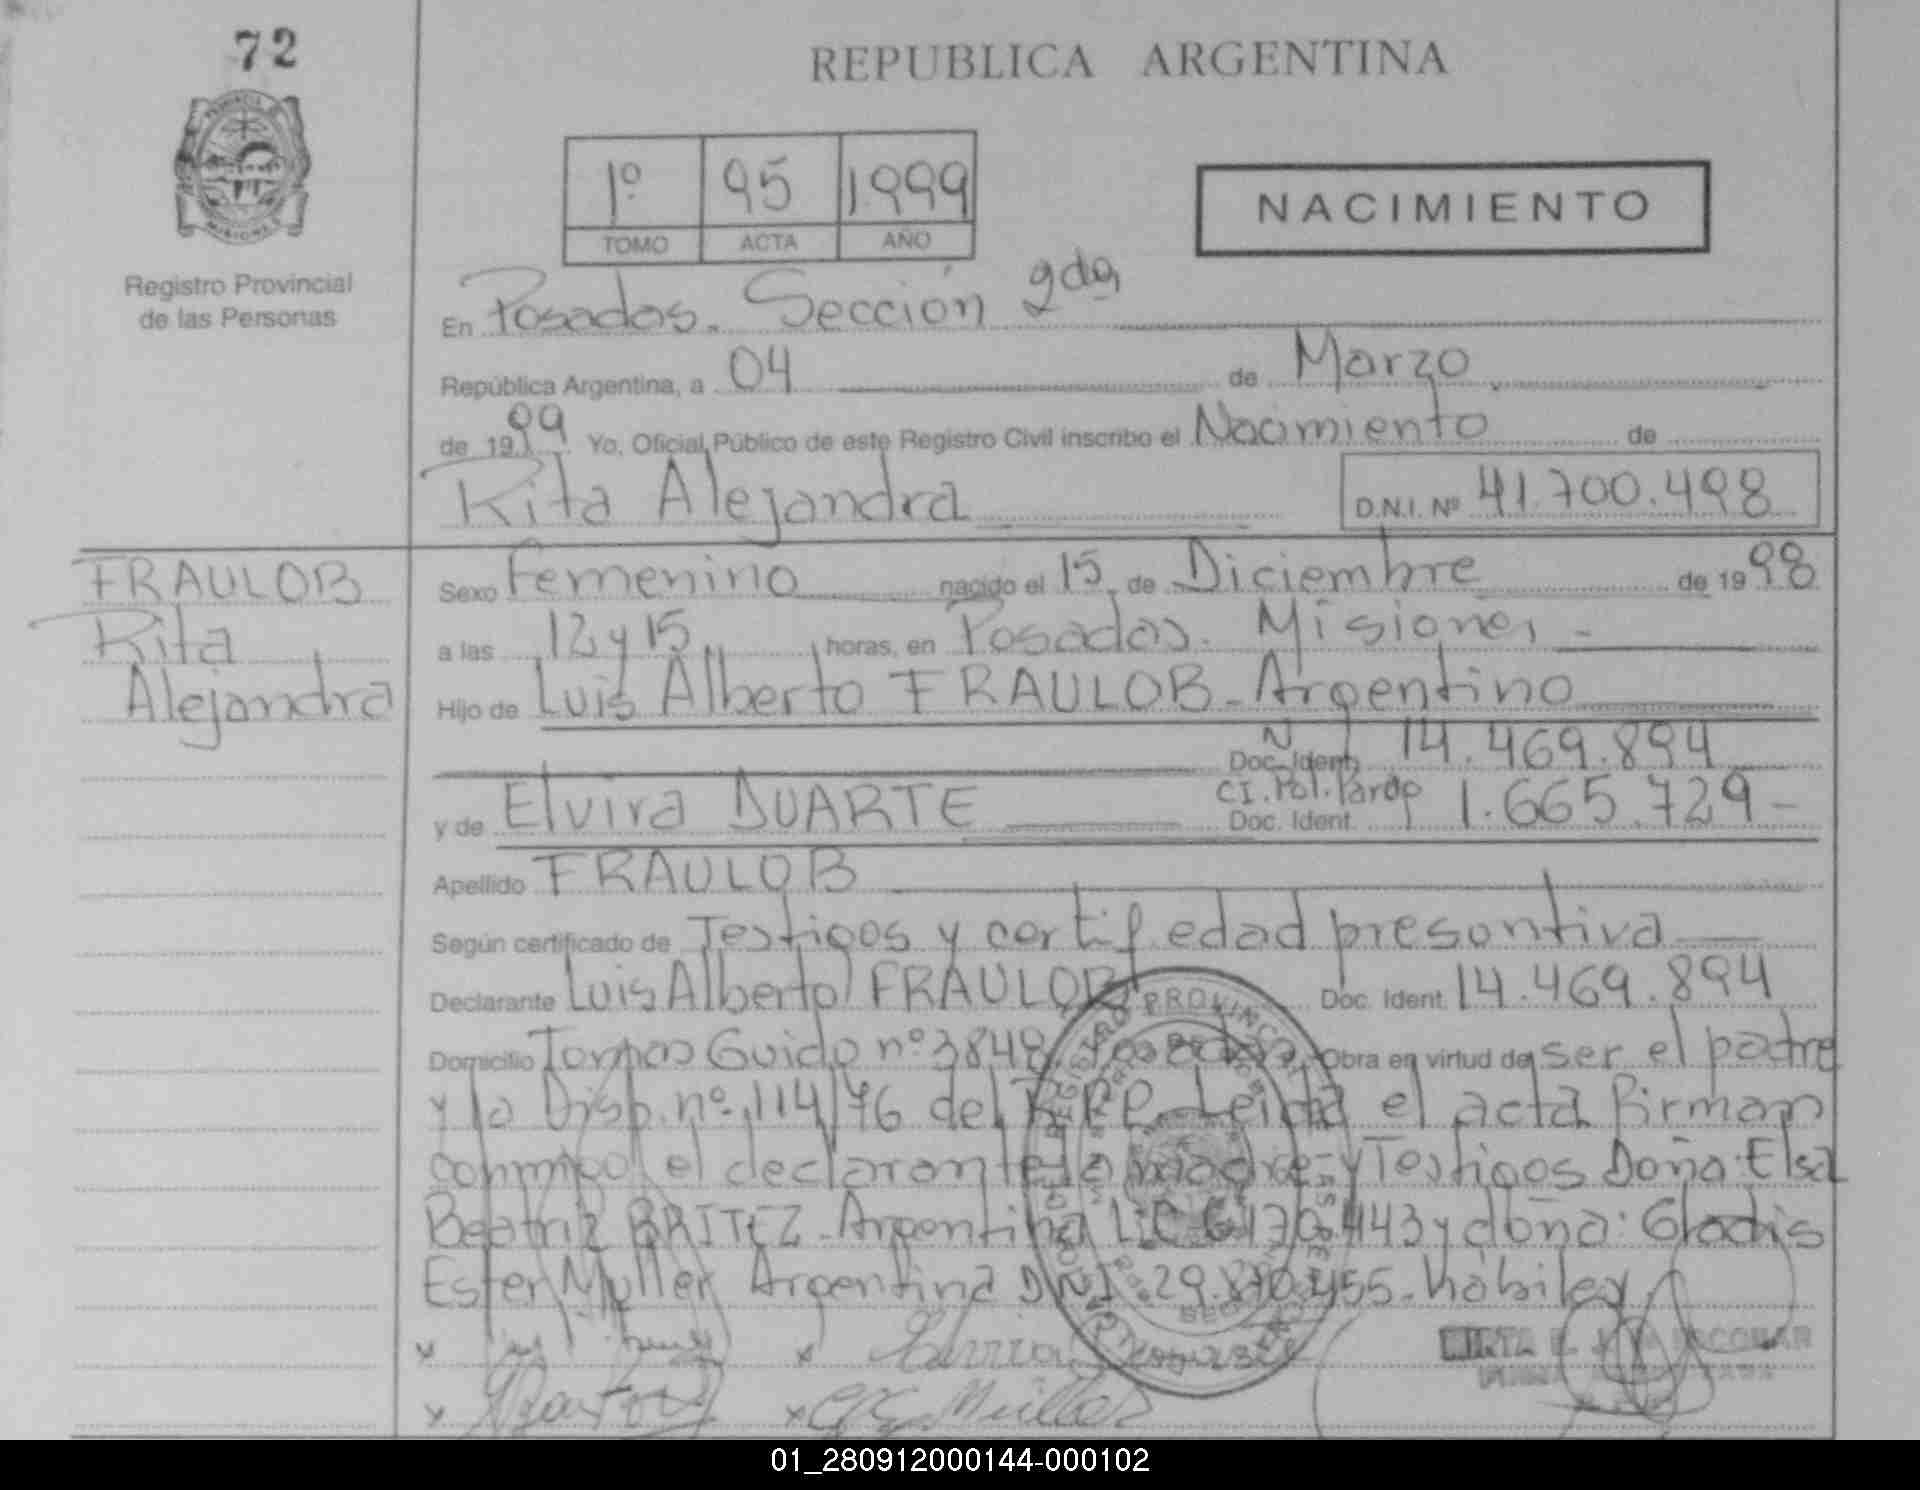 72
REPUBLICA ARGENTINA
1º 95 1999
TOMO ACTA AÑO
NACIMIENTO
Registro Provincial
de las Personas
En Posadas. Sección 2da
República Argentina, a 04 de Marzo
de 1999 Yo, Oficial Público de este Registro Civil inscribo el Nacimiento de
Rita Alejandra D.N.I. Nº 41.700.498
FRAULOB
Rita
Alejandra
Sexo Femenino nacido el 15 de Diciembre de 1998
a las 12 y 15 horas, en Posadas. Misiones -
Hijo de Luis Alberto FRAULOB - Argentino
Doc. Ident. 14.469.894
y de Elvira DUARTE CI. Pol. Doc. Ident. 1.665.729 -
Apellido FRAULOB
Según certificado de Testigos y certif. edad presuntiva
Declarante Luis Alberto FRAULOB Doc. Ident. 14.469.894
Domicilio Tomas Guido nº 3848 Posadas Obra en virtud de ser el padre
y la Disp. nº 114/76 del R.P.P. Leida el acta Firman
conmigo el declarante la madre y Testigos Doña: Elsa
Beatriz BRITEZ - Argentina L.C. 6.170.443 y doña: Gladis
Ester Muller Argentina DNI. 29.810.455. hábiles
01_280912000144-000102